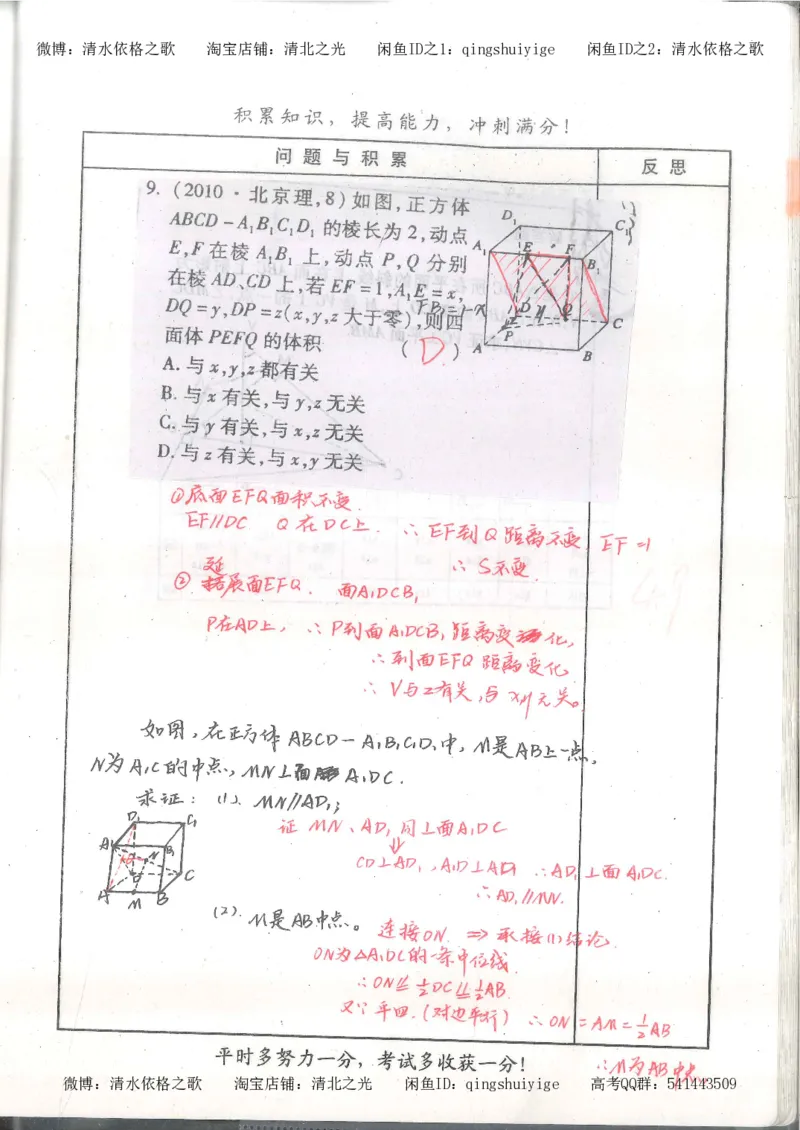 微博：清水依格之歌 淘宝店铺：清北之光 闲鱼ID之1：qingshuiyige 闲鱼ID之2：清水依格之歌
积累知识，提高能力，冲刺满分！
问题与积累 反思
9.（2010·北京理,8）如图,正方体
ABCD-A₁B₁C₁D₁的棱长为2,动点
E,F在棱A₁B₁上,动点P,Q分别
在棱AD、CD上,若EF=1,A₁E=x,
FB₁=1-x
DQ=y,DP=z(x,y,z大于零),则四
面体PEFQ的体积 （D）
A.与x,y,z都有关
B.与x有关,与y,z无关
C.与y有关,与x,z无关
D.与z有关,与x,y无关
D₁ C₁ A₁ E F B₁ D y Q C P A B
①底面EFQ面积不变.
EF∥DC Q在DC上. ∴EF到Q距离不变 EF=1
∴S不变.
②延展面EFQ. 面A₁DCB₁
P在AD上, ∴P到面A₁DCB₁距离变化,
∴到面EFQ距离变化
∴V与z有关,与x,y无关。
如图,在正方体ABCD-A₁B₁C₁D₁中,M是AB上一点,
N为A₁C的中点,MN⊥面A₁DC.
求证：(1).MN∥AD₁;
D₁ C₁ A₁ B₁ O N D C A M B
证MN、AD₁同⊥面A₁DC
⇓
CD⊥AD₁,A₁D⊥AD₁ ∴AD₁⊥面A₁DC.
∴AD₁∥MN.
(2).M是AB中点。 连接ON. ⇒承接(1)结论
ON为△A₁DC的一条中位线
∴ON∥=½DC∥=½AB.
又∵平四.(对边平行) ∴ON=AM=½AB
∴M为AB中点
平时多努力一分，考试多收获一分！
微博：清水依格之歌 淘宝店铺：清北之光 闲鱼ID：qingshuiyige 高考QQ群：541443509